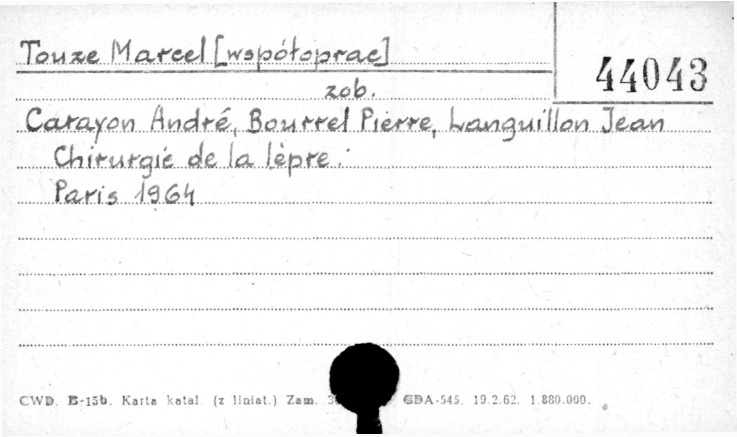 Touze Marcel [współoprac]
44043
zob.
Carayon André, Bourrel Pierre, Languillon Jean
Chirurgie de la lèpre.
Paris 1964
CWD. B-15b. Karta katal. (z liniat.) Zam. GDA-545. 19.2.62. 1.880.000.